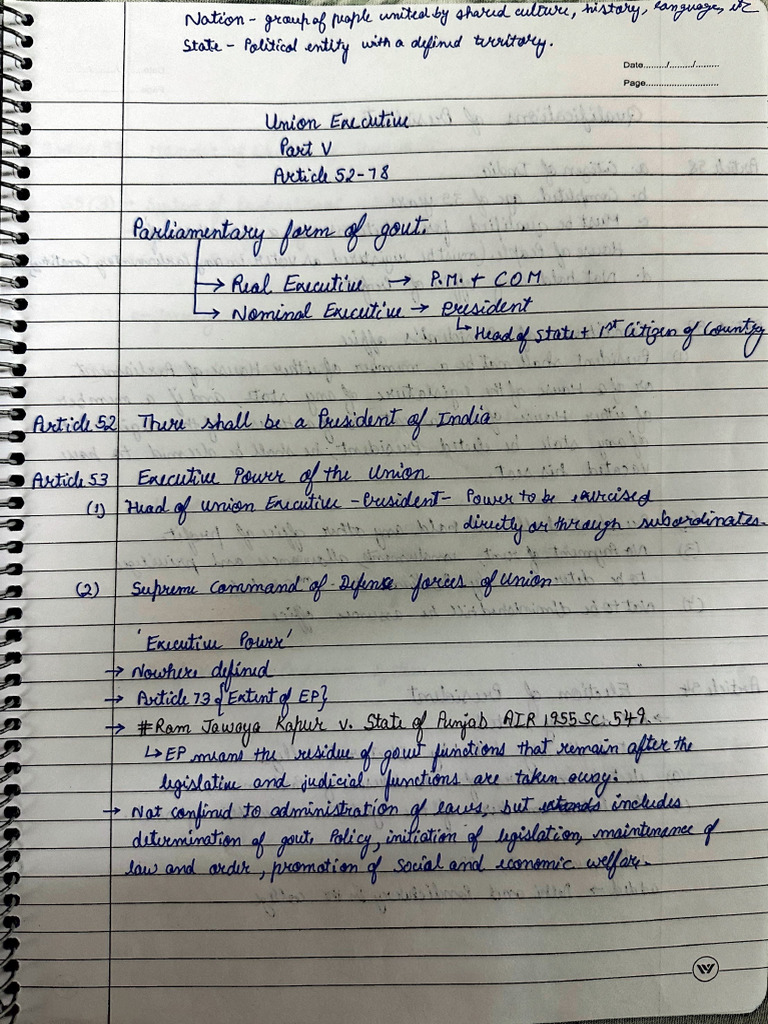 Nation - group of people united by shared culture, history, languages, etc
State - Political entity with a defined territory.
Date......../........./.........
Page..........................
Union Executive
Part V
Article 52-78
Parliamentary form of govt.
→ Real Executive → P.M. + COM
→ Nominal Executive → President
↳ Head of State + 1st Citizen of Country
Article 52 There shall be a President of India
Article 53 Executive Power of the Union
(1) Head of union Executive - President - Power to be exercised
directly or through subordinates.
(2) Supreme Command of Defense forces of Union
'Executive Power'
→ Nowhere defined
→ Article 73 {Extent of EP}
→ #Ram Jawaya Kapur v. State of Punjab AIR 1955 SC. 549.
↳ EP means the residue of govt functions that remain after the
legislative and judicial functions are taken away.
→ Not confined to administration of laws, but includes
determination of govt. Policy, initiation of legislation, maintenance of
law and order, promotion of social and economic welfare.
W